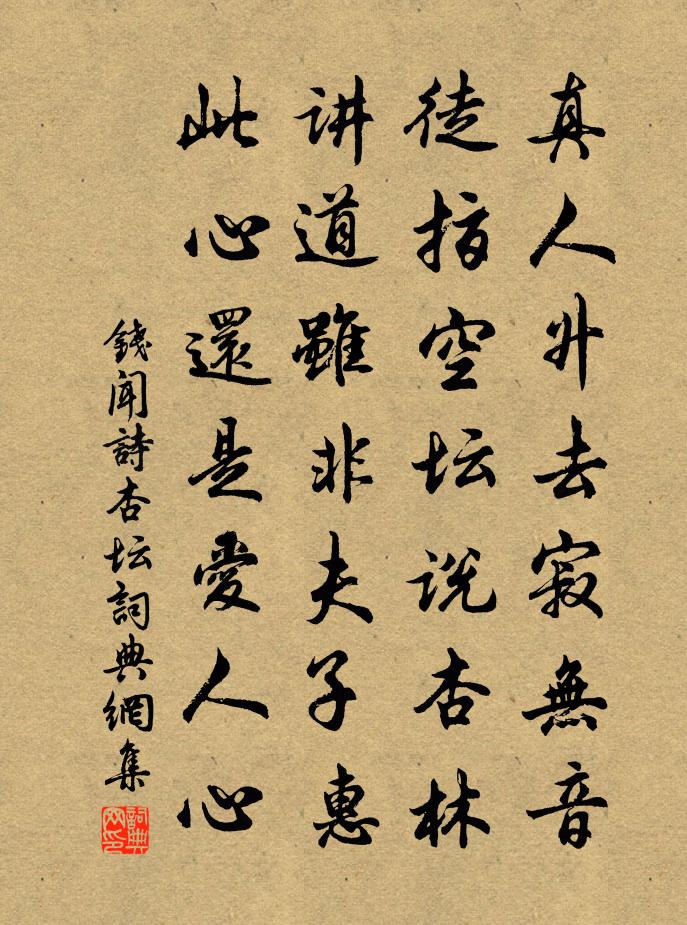 真人升去寂無音
徒指空坛说杏林
讲道雖非夫子惠
此心還是愛人心
錢闻詩杏坛詞典網集
詞典网印